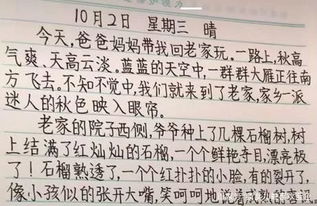 10月2日 星期三 晴
今天，爸爸妈妈带我回老家玩。一路上，秋高
气爽、天高云淡。蓝蓝的天空中，一群群大雁正往南
方飞去。不知不觉中，我们就来到了老家，家乡一派
迷人的秋色映入眼帘。
老家的院子西侧，爷爷种上了几棵石榴树，树
上结满了红灿灿的石榴，一个个鲜艳夺目，漂亮极
了！石榴熟透了，一个个红扑扑的小脸，有的裂开了，
像小孩似的张开大嘴，笑呵呵地